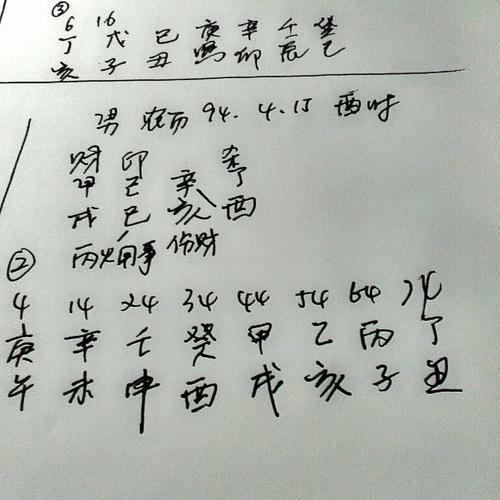 ③
6 16
丁 戊 己 庚 辛 壬 癸
亥 子 丑 寅 卯 辰 巳
男 农历 94.4.15 酉时
财 印 杀
甲 己 辛 丁
戌 巳 亥 酉
丙火用事 伤财
②
4 14 24 34 44 54 64 74
庚 辛 壬 癸 甲 乙 丙 丁
午 未 申 酉 戌 亥 子 丑